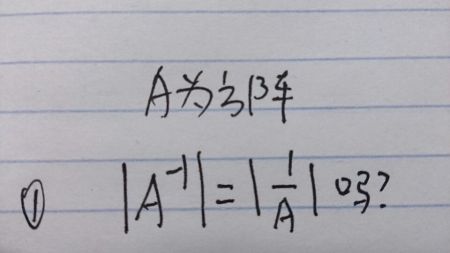 A为方阵
① |A⁻¹| = |1/A| 吗?